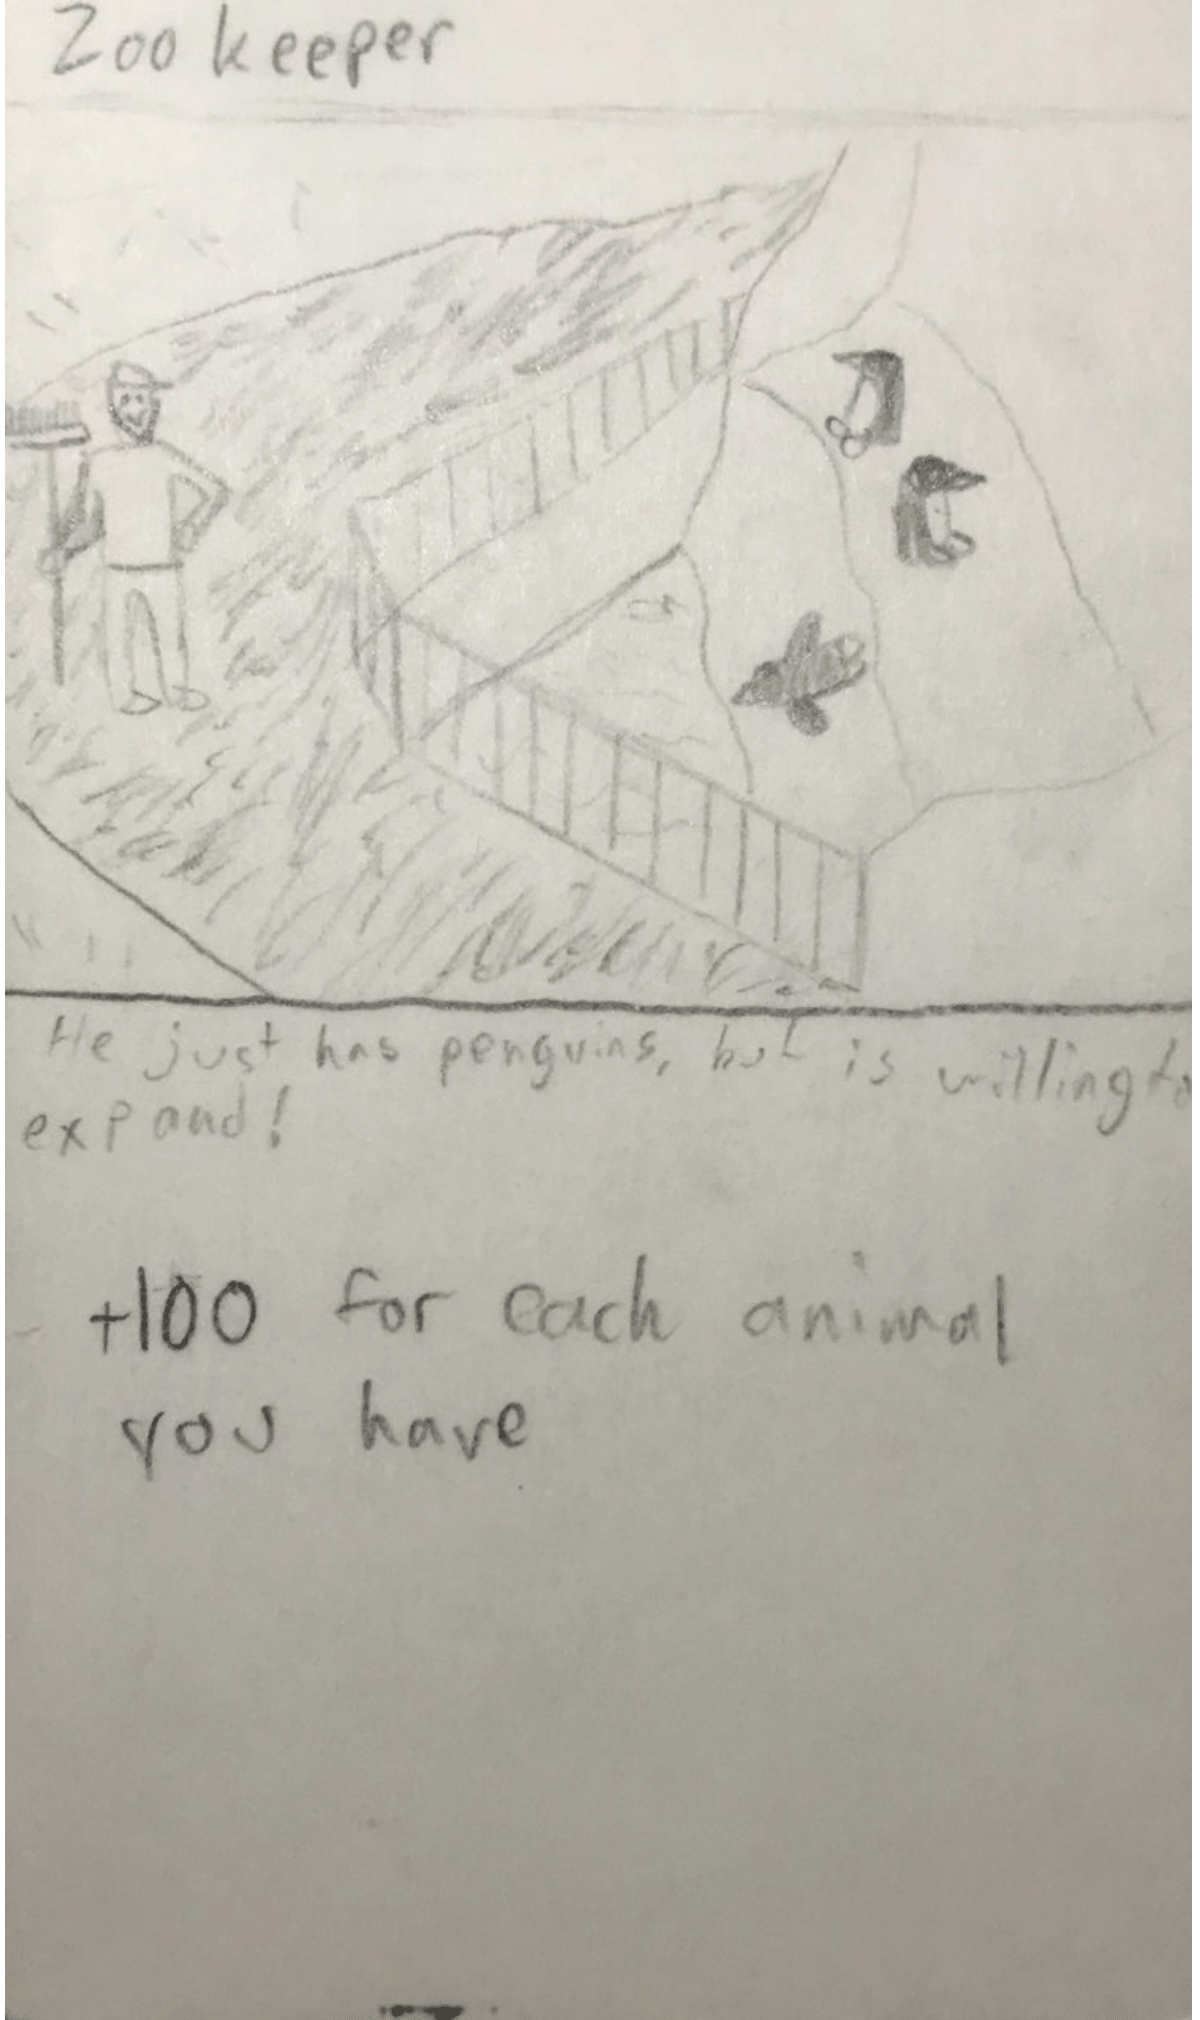 Zookeeper
He just has penguins, but is willing to
expand!
+100 for each animal
you have